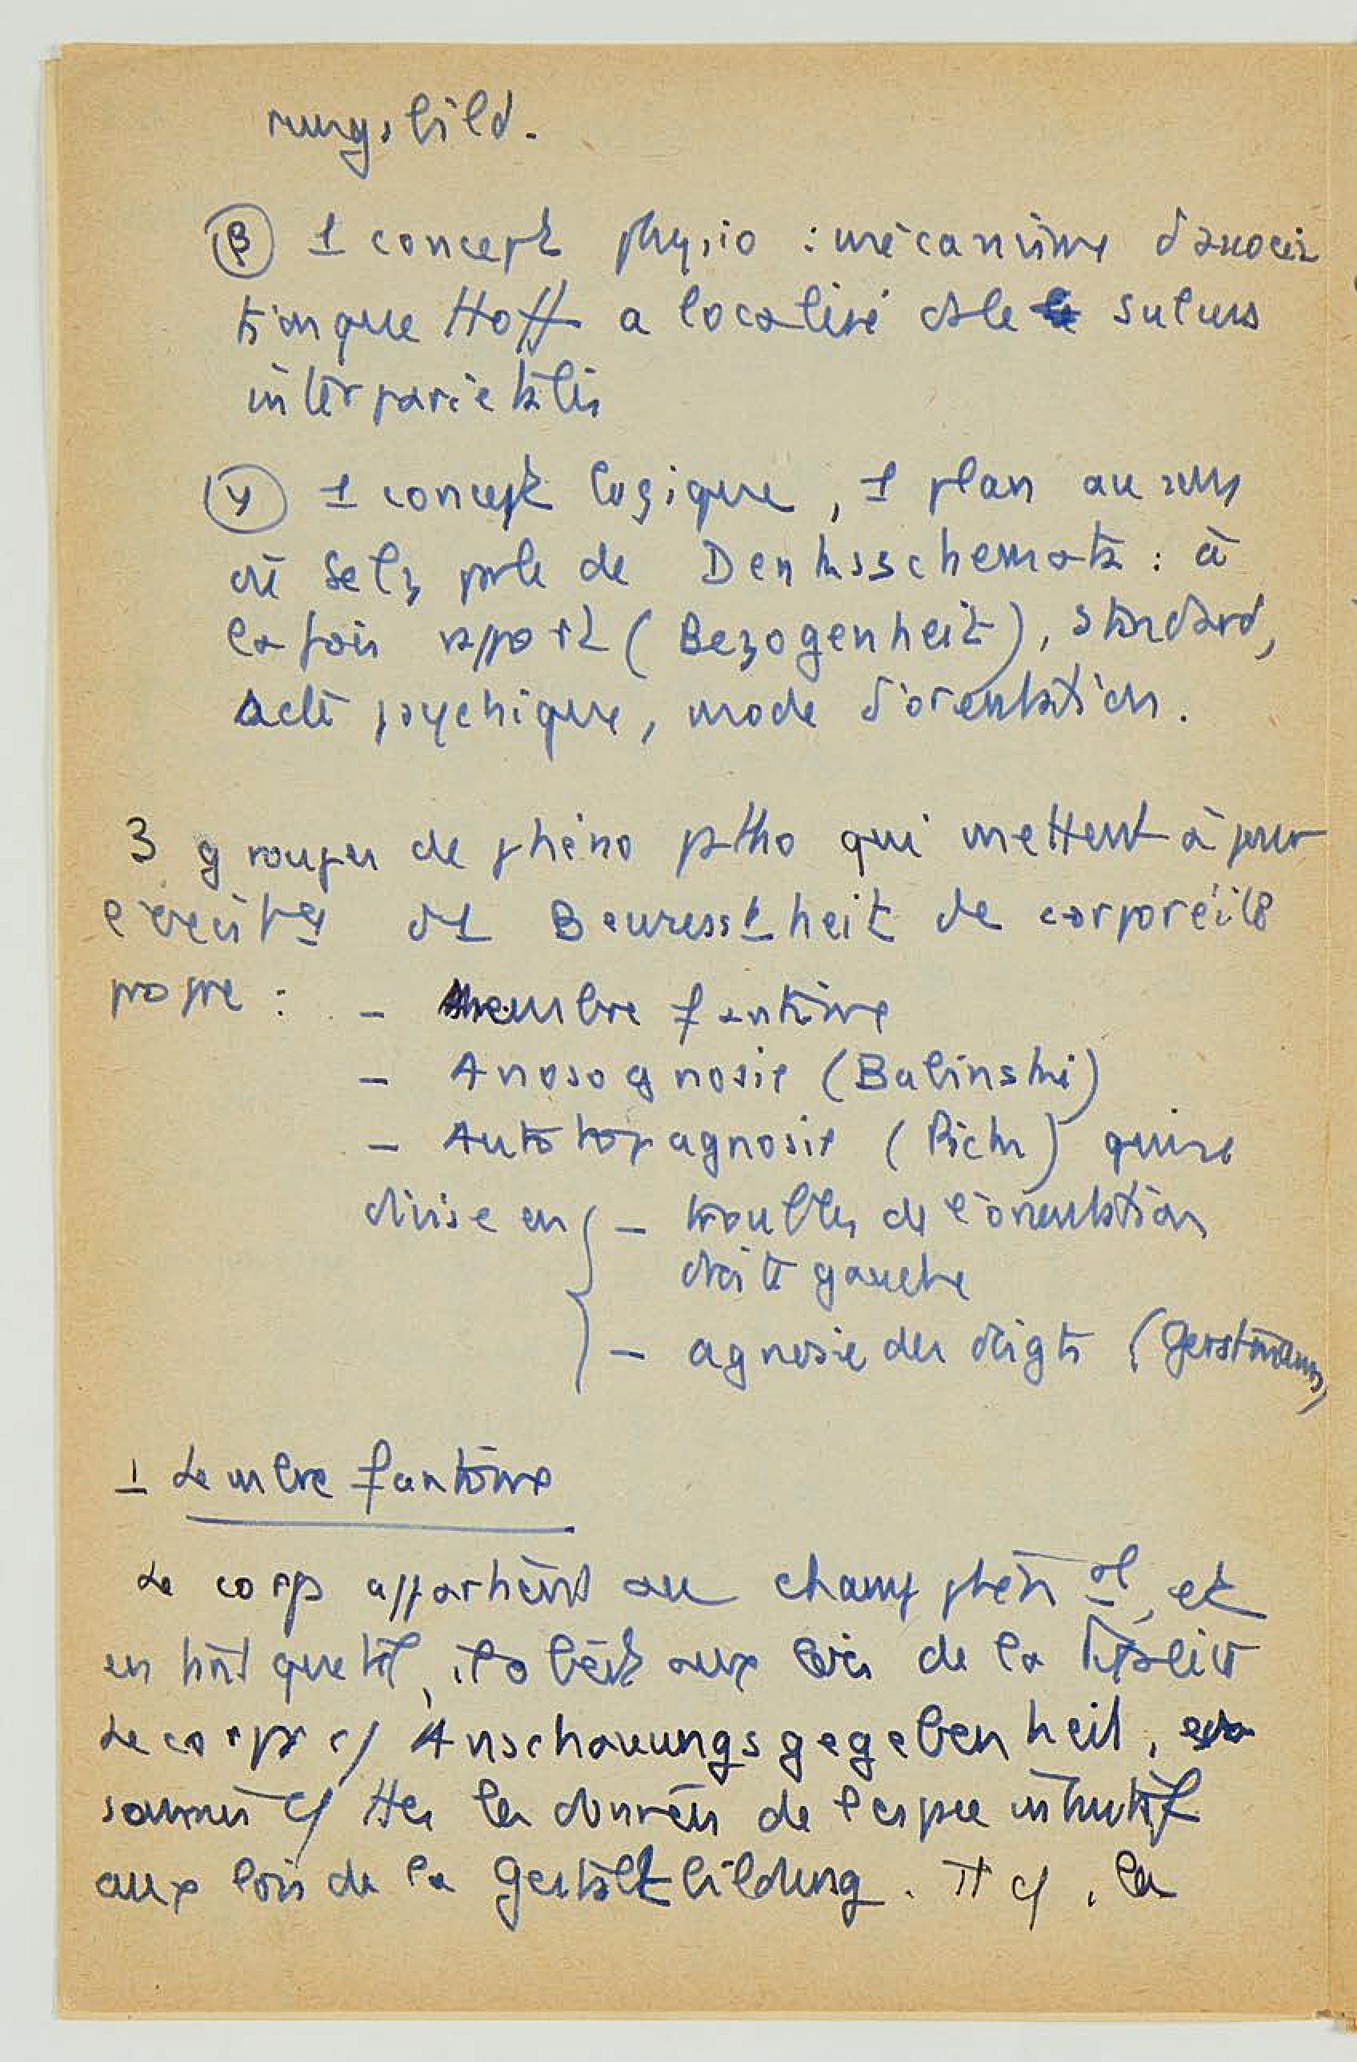 rungsbild.
(β) 1 concept physio : mécanisme d'associa
tion que Hoff a localisé ds le sulcus
interparietalis
(γ) 1 concept logique, 1 plan au sens
où Selz parle de Denksschemata : à
la fois rapport (Bezogenheit), standard,
acte psychique, mode d'orientation.
3 groupes de phéno patho qui mettent à jour
de Bewusstheit de corporéité
propre : - Membre fantôme
- Anosognosie (Babinski)
- Autotopagnosie (Pick) qui se
divise en { - troubles de l'orientation
droite gauche
- agnosie des doigts (Gerstmann)
1 Le mbre fantôme
Le corps appartient au champ phén al, et
en tant que tel, il obéit aux lois de la
Le corps c/ Anschauungsgegebenheit, est
soumis c/ ttes les données de l'espace intuitif
aux lois de la Gestaltbildung. It c/, la